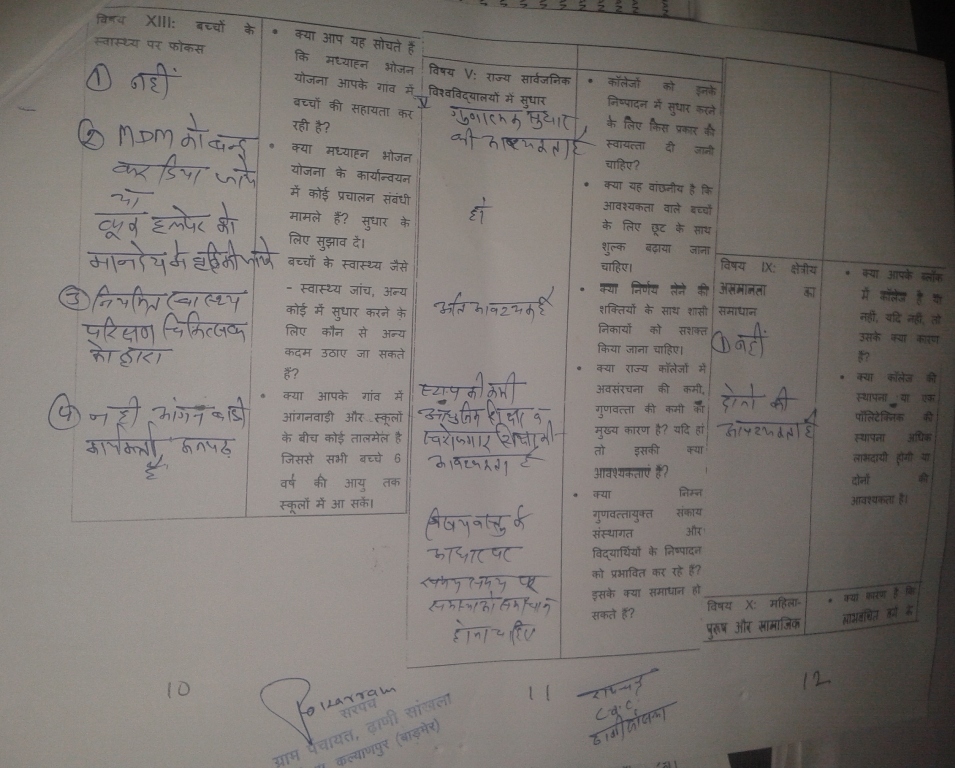 विषय XIII: बच्चों के
स्वास्थ्य पर फोकस
① नहीं
② MDM को बन्द
कर दिया जाये
या
कूक हलपर को
मानदेय में वृद्धि की जाये
③ नियमित स्वास्थ्य
परिक्षण चिकित्सक
के द्वारा
④ नही आंगनबाडी
कार्यकर्ता अनपढ़
है
• क्या आप यह सोचते हैं
कि मध्याहन भोजन
योजना आपके गांव में
बच्चों की सहायता कर
रही है?
• क्या मध्याहन भोजन
योजना के कार्यान्वयन
में कोई प्रचालन संबंधी
मामले हैं? सुधार के
लिए सुझाव दें।
बच्चों के स्वास्थ्य जैसे
- स्वास्थ्य जांच, अन्य
कोई में सुधार करने के
लिए कौन से अन्य
कदम उठाए जा सकते
हैं?
• क्या आपके गांव में
आंगनवाडी और स्कूलों
के बीच कोई तालमेल है
जिससे सभी बच्चे 6
वर्ष की आयु तक
स्कूलों में आ सकें।
10
विषय V: राज्य सार्वजनिक
विश्वविद्यालयों में सुधार
गुणात्मक सुधार
की आवश्यकता है
हाँ
अति आवश्यक है
स्टाफ की कमी
आधुनिक शिक्षा व
रोजगार शिक्षा की
आवश्यकता है
विषयवस्तु के
आधार पर
समय समय पर
समस्या को समाधान
होना चाहिए
• कॉलेजों को इनके
निष्पादन में सुधार करने
के लिए किस प्रकार की
स्वायत्ता दी जानी
चाहिए?
• क्या यह वांछनीय है कि
आवश्यकता वाले बच्चों
के लिए छूट के साथ
शुल्क बढ़ाया जाना
चाहिए।
• क्या निर्णय लेने की
शक्तियों के साथ शासी
निकायों को सशक्त
किया जाना चाहिए।
• क्या राज्य कॉलेजों में
अवसंरचना की कमी,
गुणवत्ता की कमी का
मुख्य कारण है? यदि हां
तो इसकी क्या
आवश्यकताएं हैं?
• क्या निम्न
गुणवत्तायुक्त संकाय
संस्थागत और
विद्यार्थियों के निष्पादन
को प्रभावित कर रहे हैं?
इसके क्या समाधान हो
सकते हैं?
11
विषय IX: क्षेत्रीय
असमानता का
समाधान
① नहीं
दोनो की
आवश्यकता है
• क्या आपके ब्लॉक
में कॉलेज है या
नहीं, यदि नहीं, तो
उसके क्या कारण
हैं?
• क्या कॉलेज की
स्थापना या एक
पॉलिटेक्निक की
स्थापना अधिक
लाभदायी होगी या
दोनों की
आवश्यकता है।
विषय X: महिला-
पुरूष और सामाजिक
• क्या कारण है कि
12
सरपंच
ग्राम पंचायत, ढ़ाणी सांखला
कल्याणपुर (बाड़मेर)